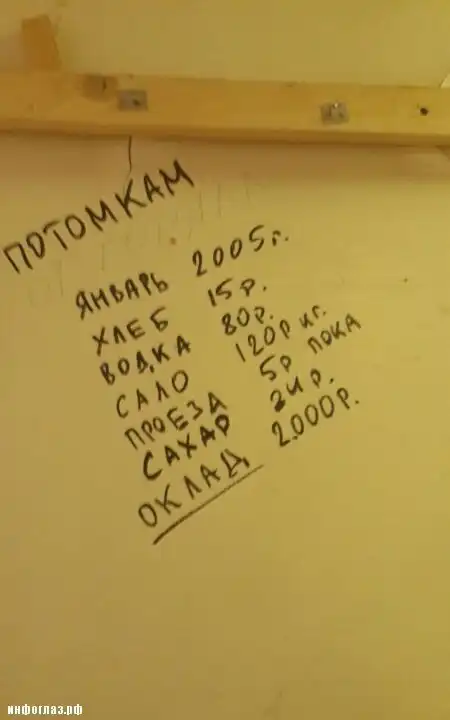 ПОТОМКАМ
ЯНВАРЬ 2005г.
ХЛЕБ 15р.
ВОДКА 80р.
САЛО 120р кг.
ПРОЕЗД 5р ПОКА
САХАР 24р.
ОКЛАД 2.000р.
инфоглаз.рф